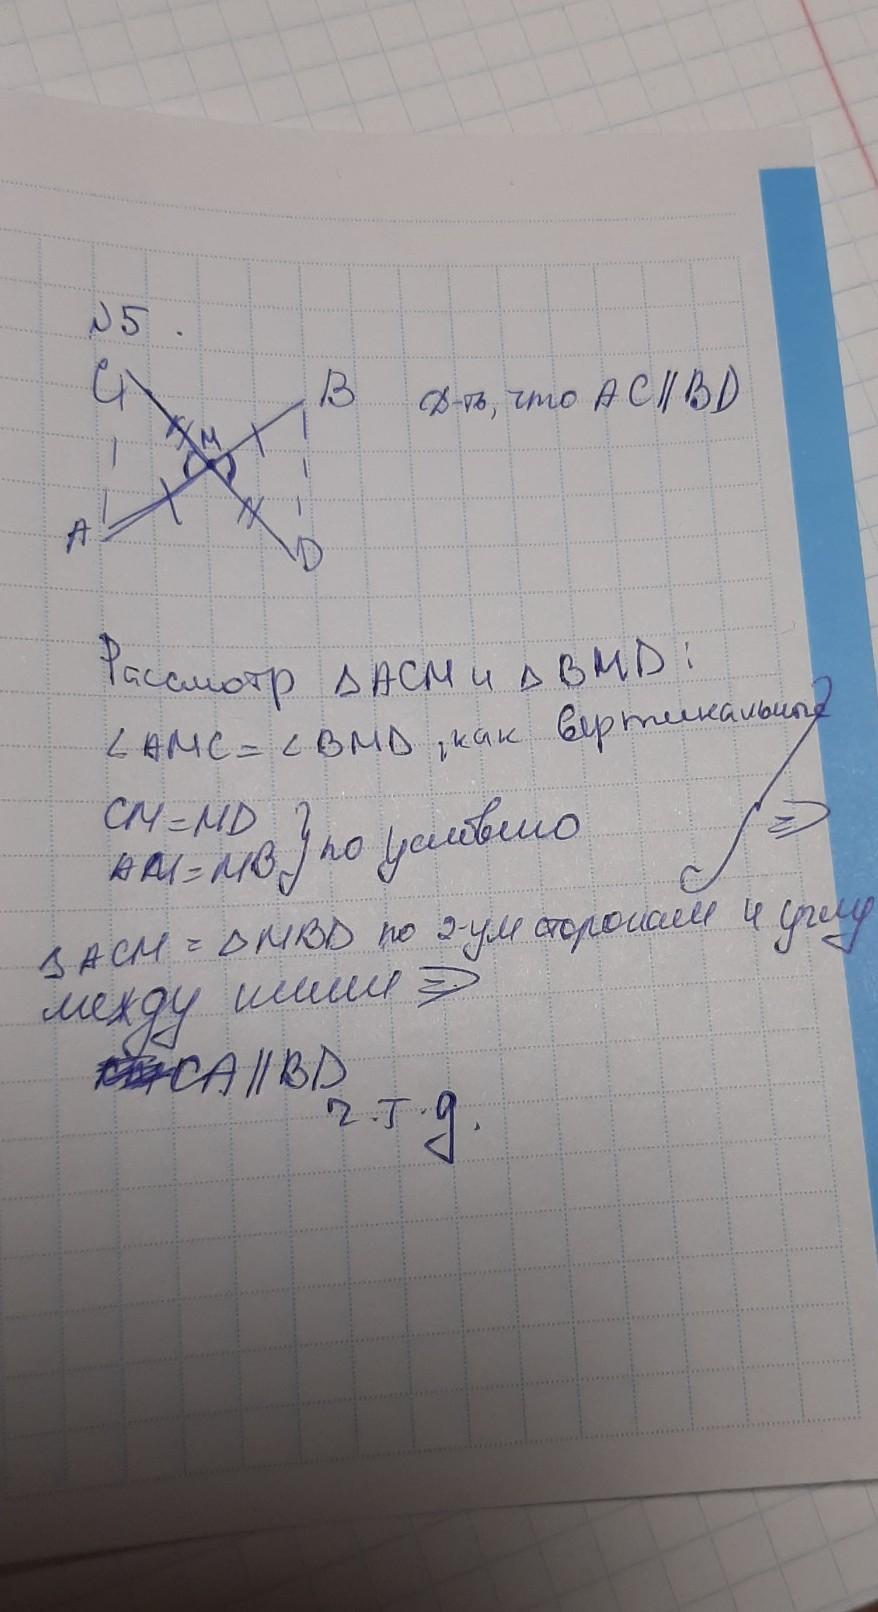 №5.
C
B
Д-ть, что AC∥BD
M
A
D
Рассмотр △ACM и △BMD:
∠AMC=∠BMD, как вертикальные
CM=MD
} по условию
⇒
AM=MB
△ACM = △MBD по 2-ум сторонам и углу
между ними ⇒
CA∥BD
ч.т.д.